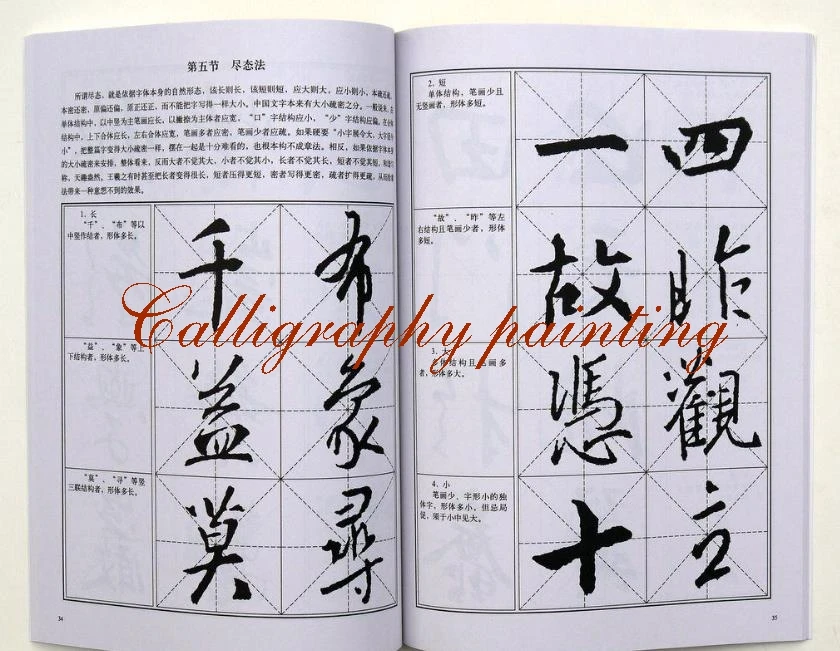 第五节 尽态法
所谓尽态，就是依据字体本身的自然形态，该长则长，该短则短，应大则大，应小则小，本疏还疏，
本密还密，原偏还偏，原正还正，而不能把字写得一样大小。中国文字本来有大小疏密之分。一般说来，在
单体结构中，以中竖为主笔画应长，以撇捺为主体者应宽，“口”字结构应小，“少”字结构应扁。在合体
结构中，上下合体应长，左右合体应宽，笔画多者应密，笔画少者应疏。如果硬要“小字展令大，大字促令
小”，把整篇字变得大小疏密一样，摆在一起是十分难看的，也根本构不成章法。相反，如果依据字体本身
的大小疏密来安排，整体看来，反而大者不觉其大，小者不觉其小，长者不觉其长，短者不觉其短，和谐匀
称，天趣盎然。王羲之有时甚至把长者变得很长，短者压得更短，密者写得更密，疏者扩得更疏，从而给章
法带来一种意想不到的效果。
1、长
“千”、“布”等以
中竖作结者，形体多长。
千 布
“益”、“象”等上
下结构者，形体多长。
益 象
“莫”、“寻”等竖
三联结构者，形体多长。
莫 尋
34
2、短
单体结构，笔画少且
无竖画者，形体多短。
一 四
“故”、“昨”等左
右结构且笔画少者，形体
多短。
故 昨
3、大
多体结构且笔画多
者，形体多大。
憑 觀
4、小
笔画少、字形小的独
体字，形体多小，但忌局
促，须于小中见大。
十 立
35
Calligraphy painting